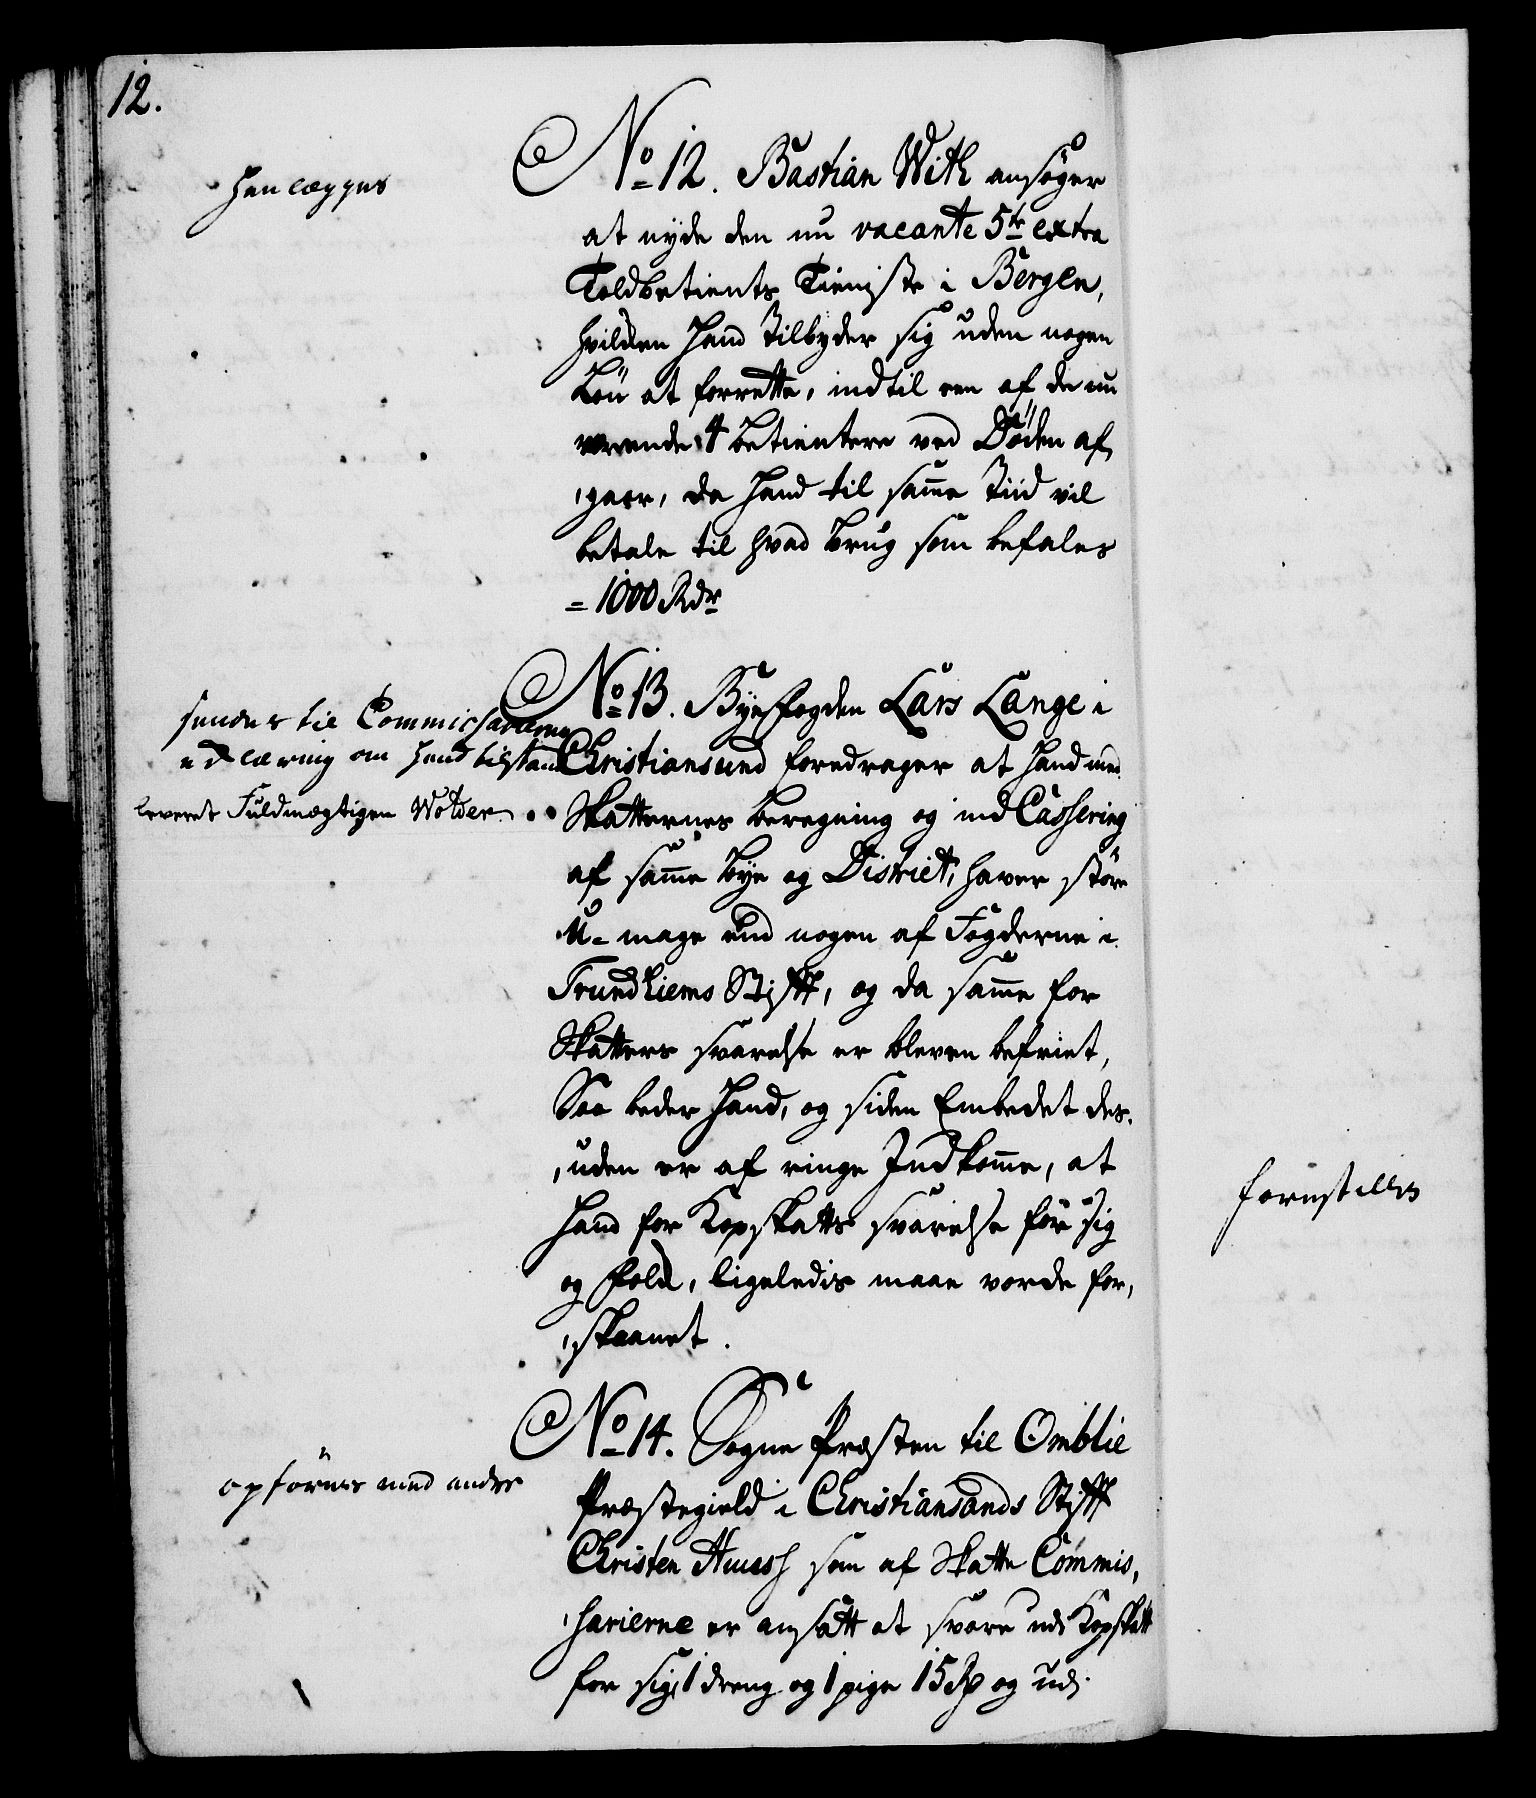 12.
Henlægges
No 12. Bastian With ansøger
at nyde den nu vacante 5te extra
Toldbetients Tieniste i Bergen,
hvilken Hand tilbyder sig uden nogen
Løn at forrette, indtil een af de nu
værende 4 betientere ved Döden af,
,gaar, da Hand til samme Tiid vil
betale til hvad brug som befales
= 1000 Rdr
sendes til Commissarierne
erklæring om hand tilstand
leveret Fuldmægtigen Wolder
No 13. Byefogden Lars Lange i
Christiansund foredrager at Hand med
Skatternes beregning og ind Cassering
af samme bye og District, haver större
U-mage end nogen af Fogderne i
Trundhiems Stifft, og da samme for
Skatters svarelse er bleven befriet,
Saa beder Hand, og siden Embedet des,
,uden er af ringe Indkomme, at
Hand for Kopskatts svarelse for sig
og Folk, ligeledis maae vorde for,
,skaanet.
forestilles
opföres med andre
No 14. Sogne Præsten til Omblie
Præstegield i Christiansands Stifft
Christen som af Skatte Commis,
,sarierne er ansatt at svare udi Kopskatt
for sig, 1 dreng og 1 pige 15 Rd og udi